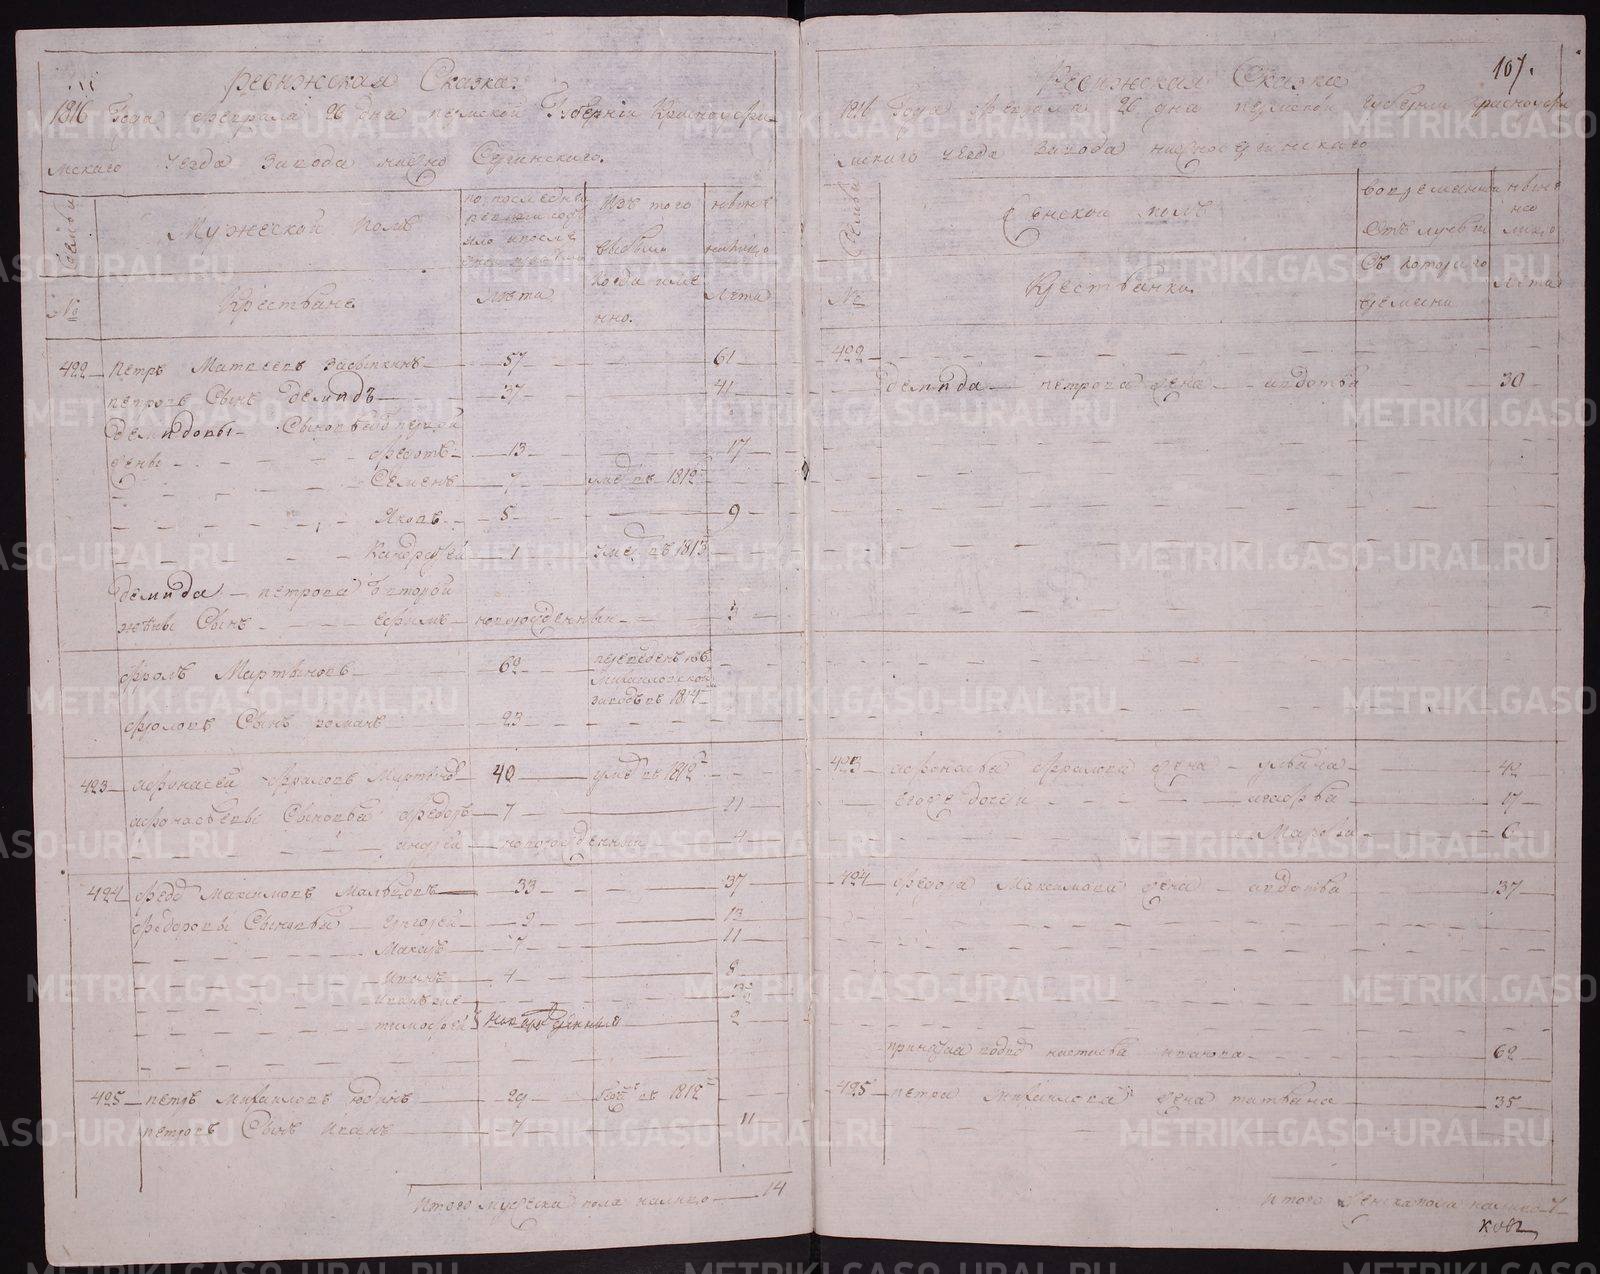 Ревижская Сказка.
1816 Года февраля 26 дня пермской Губернiи Красноуфи-
мскаго уезда завода нижно Сергинскаго.
Семьи
№
Мужеской полъ
Крестьяне.
по последней ревизии
лета
Изъ того выбыли
когда име
нно.
ныне
налицо
лета
422 Петръ Матвеевъ 57 61
петровъ Сынъ демидъ 37 41
демидовы Сыновья отъ первой
жены федотъ 13 17
Семенъ 7 умеръ въ 1812
Яковъ 5 9
Кандратей 1 умеръ въ 1813
демида петрова второй
жены Сынъ ефимъ новорожденный 3
фролъ Мартыновъ 69 переведенъ въ
Михайловской
заводъ въ 1814
фроловъ Сынъ романъ 23
423 афонасей фраловъ Мартыновъ 40 умеръ въ 1812
афонасьевы Сыновья федоръ 7 11
андрей новорожденный 4
424 федоръ Максимовъ Мальцовъ 33 37
федоровы Сыновья григорей 9 13
Макаръ 7 11
4 8
тимофей новорожденныя 2
425 петръ михаиловъ юдинъ 29 въ 1812
петровъ Сынъ Иванъ 7 11
Итого мужеска пола налицо 14
107.
Ревижская Сказка
1816 Года февраля 26 дня пермской губернiи красноуфи
мскаго уезда завода нижносергинскаго
Семьи
№
Женской полъ
Крестьянки.
Во временной
отлучке
Съ котораго
времени
ныне
налицо
лета
422
демида петрова жена авдотья 30
423 афонасья фралова жена ульяна 42
его же дочери агафья 17
Марфа 6
424 федора Максимова жена авдотья 37
настасья иванова 62
425 петра михаилова жена татьяна 35
Итого женска пола налицо 7
ковъ
METRIKI.GASO-URAL.RU